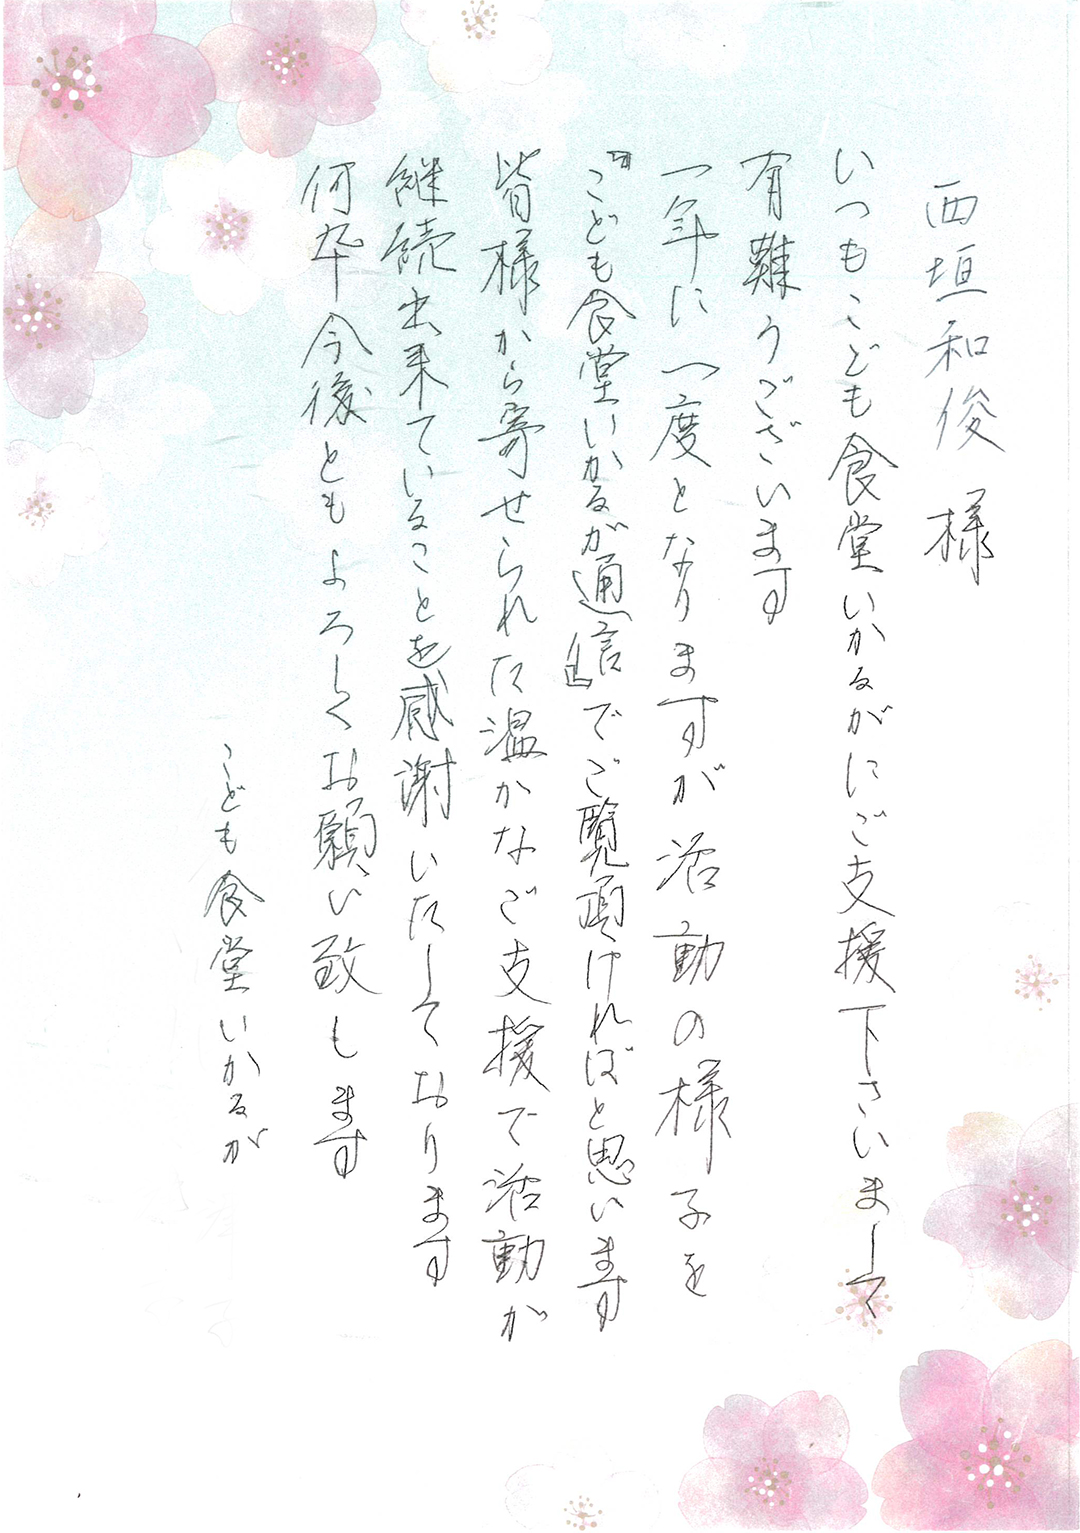 西垣和俊 様
いつもこども食堂いかるがにご支援下さいまして
有難うございます
一年に一度となりますが活動の様子を
『こども食堂いかるが通信』でご覧頂ければと思います
皆様から寄せられた温かなご支援で活動が
継続出来ていることを感謝いたしております
何卒今後ともよろしくお願い致します
こども食堂いかるが